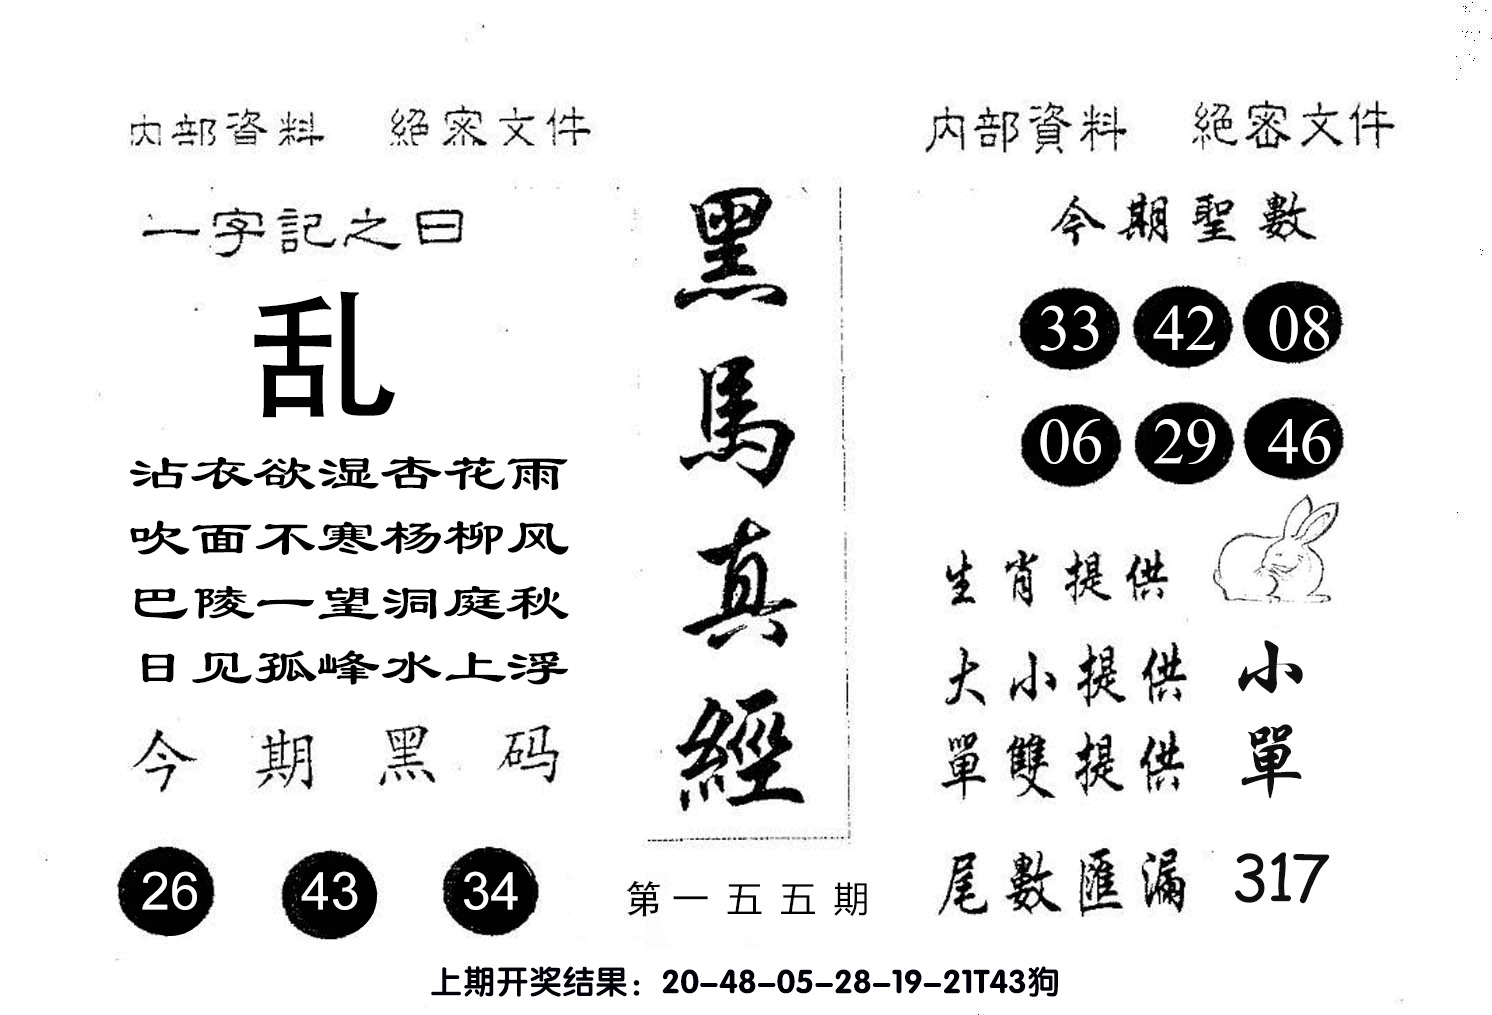 内部資料 絕密文件
一字記之曰
乱
沾衣欲湿杏花雨
吹面不寒杨柳风
巴陵一望洞庭秋
日见孤峰水上浮
今期黑码
26 43 34
黑馬真經
第一五五期
内部資料 絕密文件
今期聖數
33 42 08
06 29 46
生肖提供
大小提供 小
單雙提供 單
尾數匯漏 317
上期开奖结果：20-48-05-28-19-21T43狗